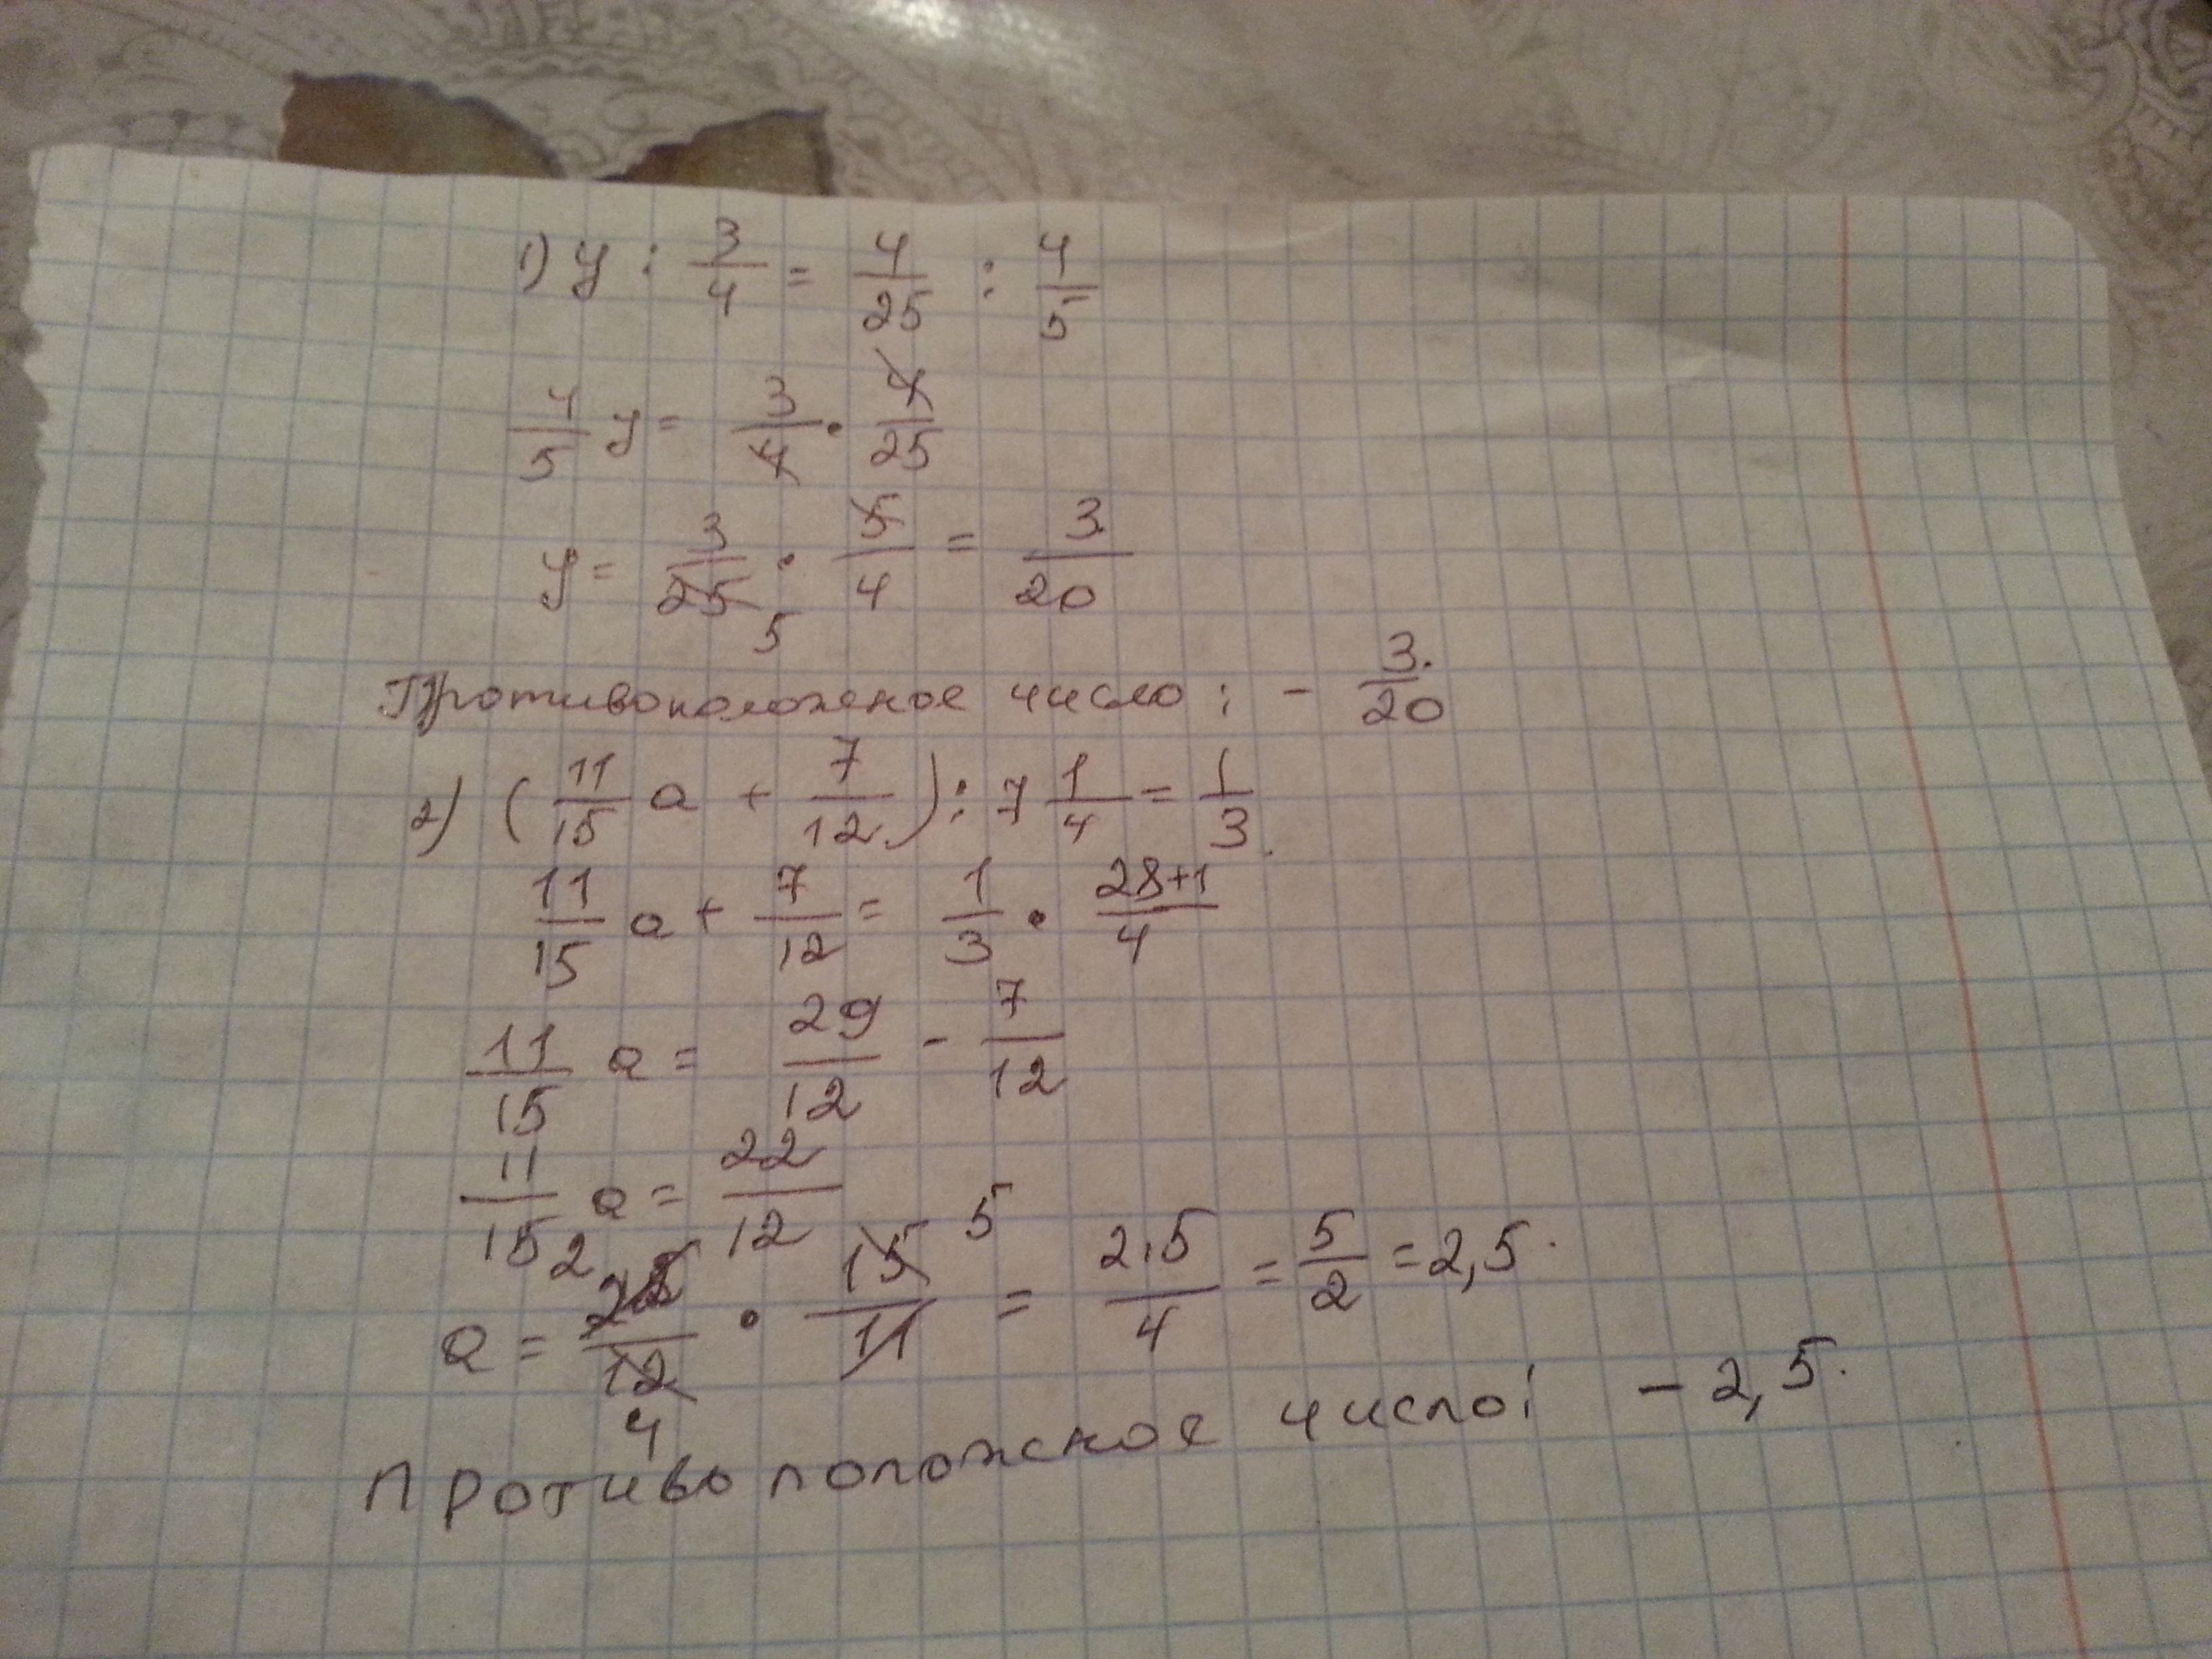 1) y : 3/4 = 4/25 : 4/5
4/5 y = 3/4 · 4/25
y = 3/25 5 · 5/4 = 3/20
Противоположное число: - 3/20
2) (11/15 a + 7/12) : 7 1/4 = 1/3
11/15 a + 7/12 = 1/3 · 28+1/4
11/15 a = 29/12 - 7/12
11/15 a = 22/12
a = 2 22/12 4 · 15/11 5 = 2·5/4 = 5/2 = 2,5.
Противоположное число: - 2,5.